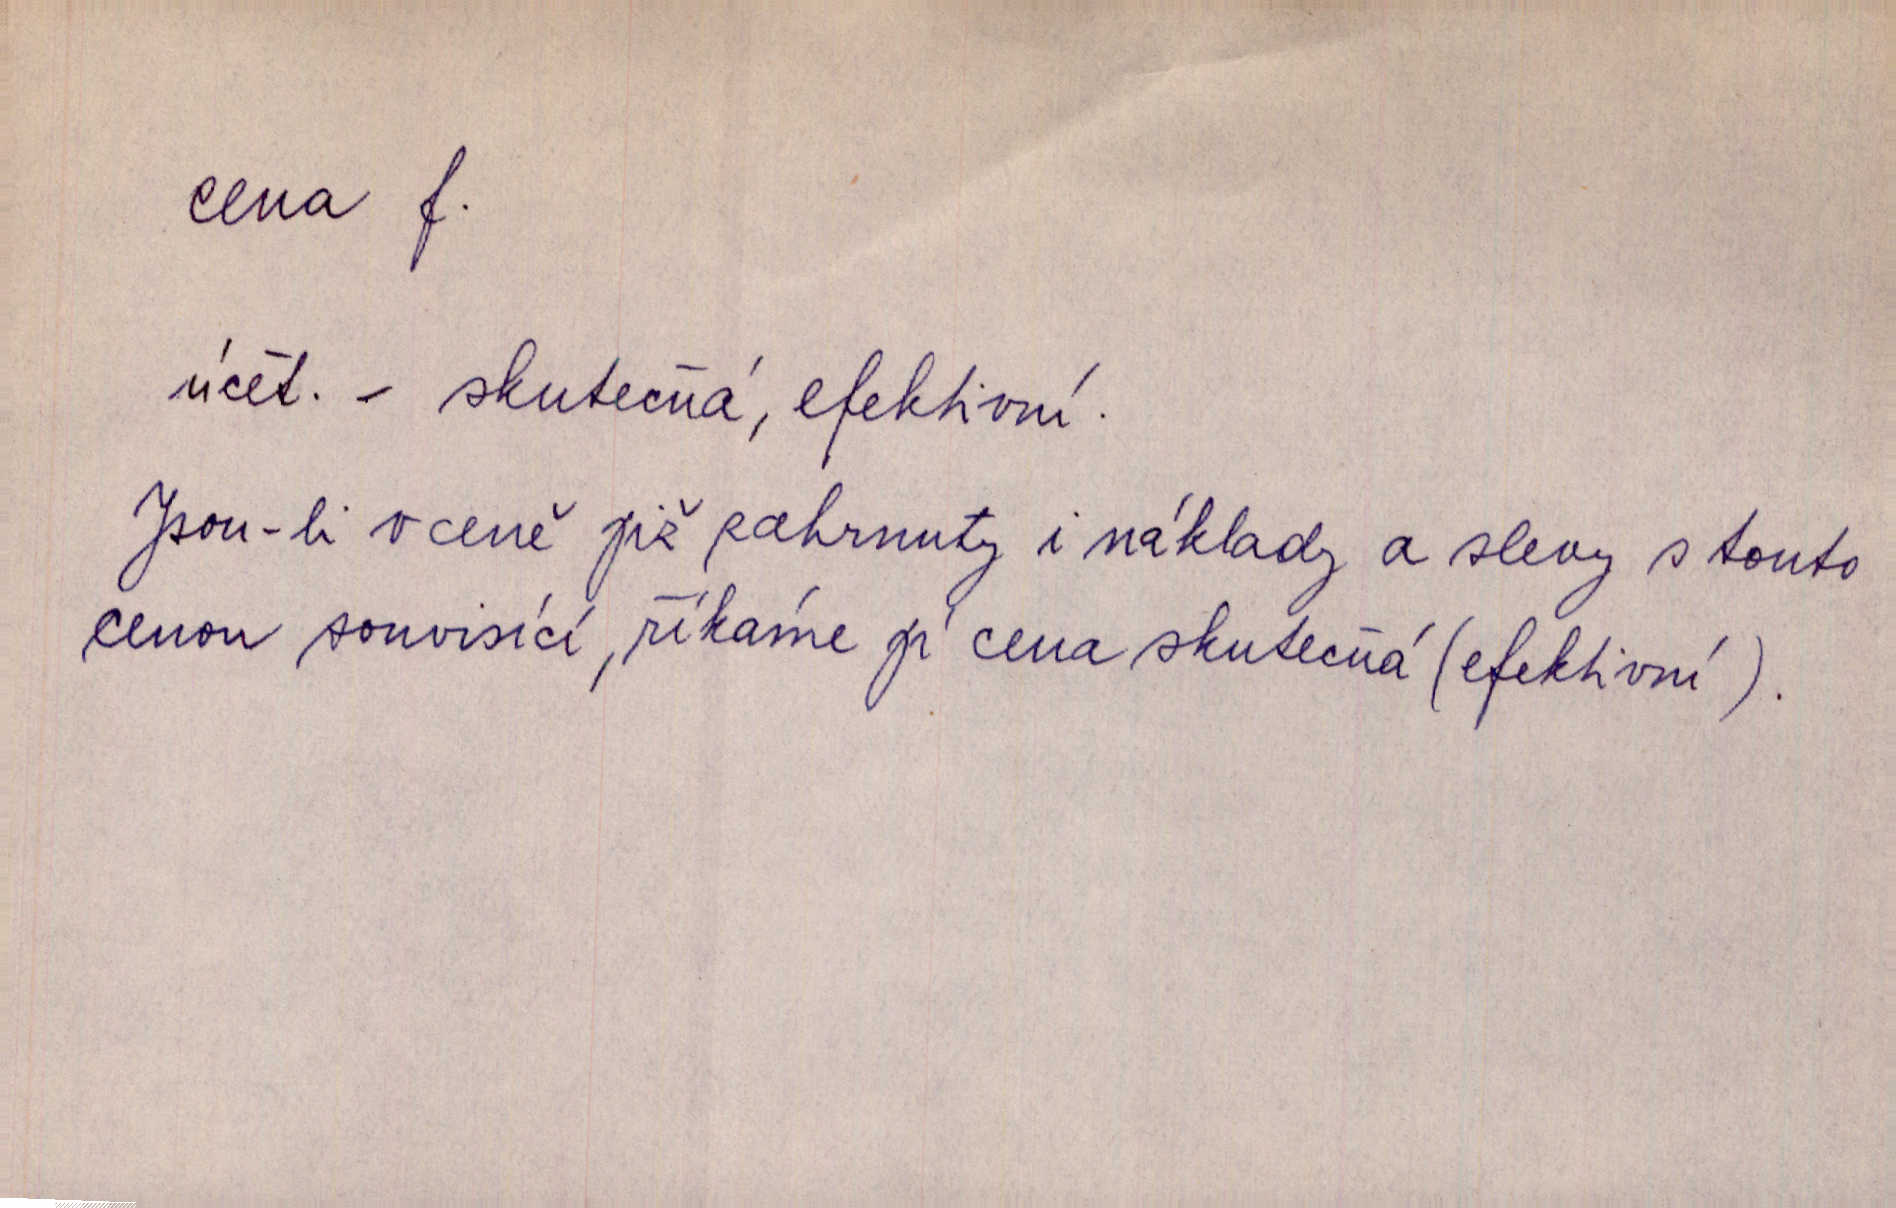 cena f.
účet. - skutečná, efektivní.
Jsou-li v ceně již zahrnuty i náklady a slevy s touto
cenou souvisící, říkáme jí cena skutečná (efektivní).